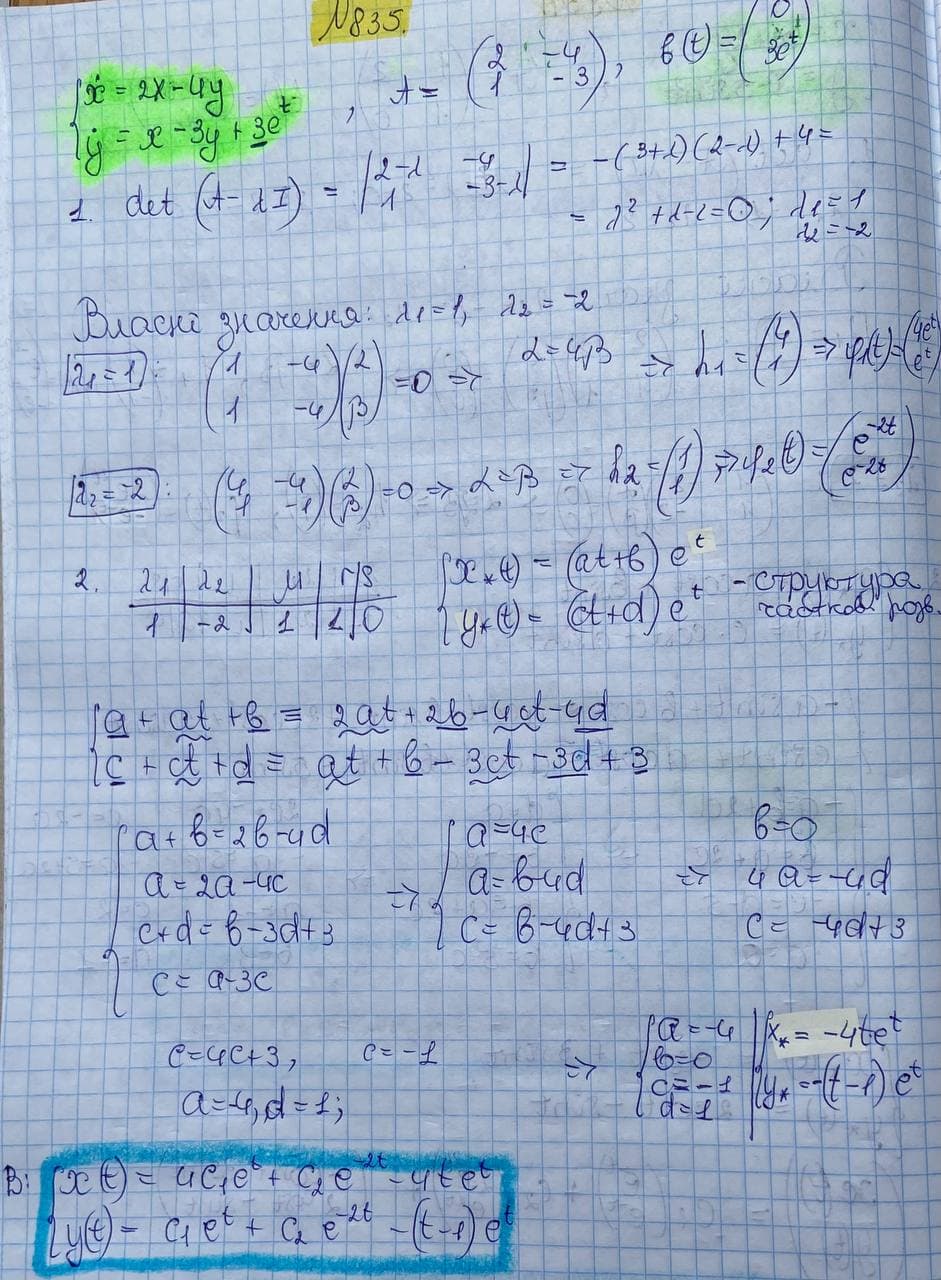 №835.
{ẋ = 2x-4y
{ẏ = x-3y+3e^t , A = (2 -4; 1 -3), b(t) = (0; 3e^t)
1. det (A-λI) = |2-λ -4; 1 -3-λ| = -(3+λ)(2-λ)+4=
= λ²+λ-2=0; λ1=1 λ2=-2
Власні значення: λ1=1, λ2=-2
λ1=1: (1 -4; 1 -4)(α; β)=0 => α=4β => h1=(4; 1) => φ1(t)=(4e^t; e^t)
λ2=-2: (4 -4; 1 -1)(α; β)=0 => α=β => h2=(1; 1) => φ2(t)=(e^-2t; e^-2t)
2. λ1 | λ2 | μ | r | s
1 | -2 | 1 | 1 | 0
{x*(t) = (at+b)e^t
{y*(t) = (ct+d)e^t - структура частков. розв.
{a + at + b ≡ 2at+2b-4ct-4d
{c + ct + d ≡ at + b - 3ct - 3d + 3
{a+b=2b-4d
a=2a-4c
c+d=b-3d+3
c=a-3c
=> {a=4c
a=b-4d
c=b-4d+3
=> b=0
4a=-4d
c=-4d+3
c=4c+3, c=-1
a=-4, d=1;
=> {a=-4
b=0
c=-1
d=1
{x* = -4te^t
{y* = -(t-1)e^t
В: {x(t) = 4c1e^t + c2e^-2t - 4te^t
{y(t) = c1e^t + c2e^-2t - (t-1)e^t